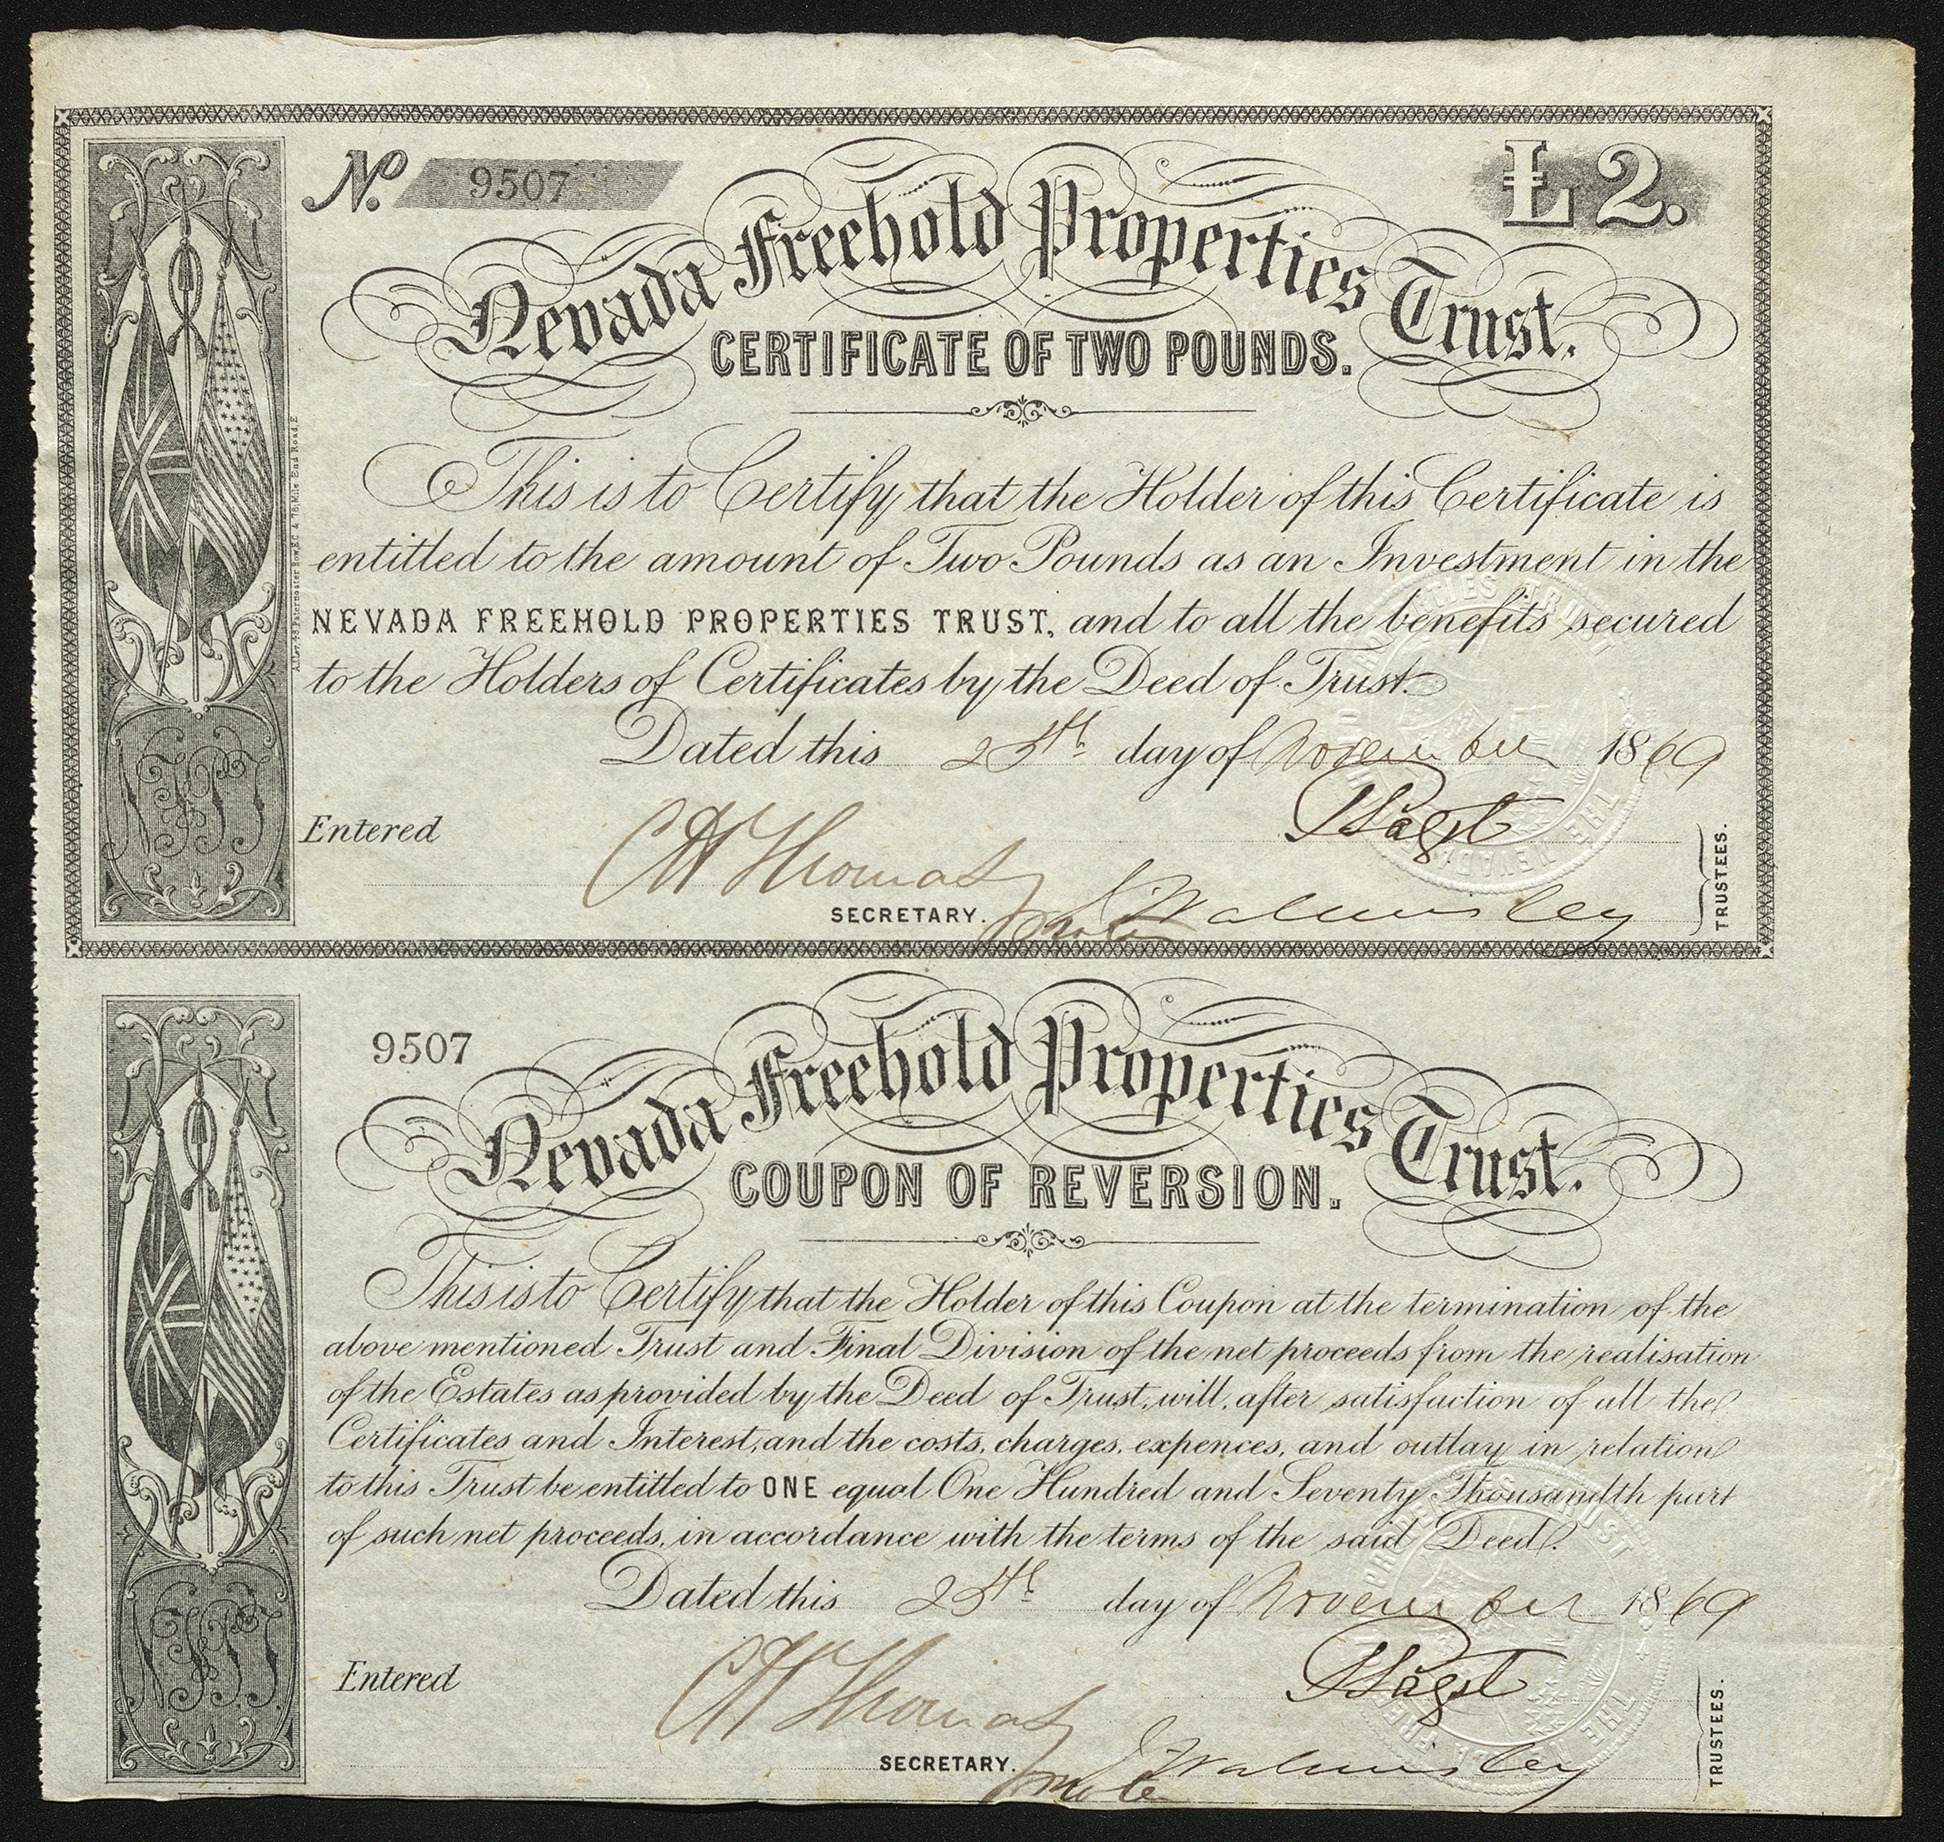 No. 9507
£2.
Nevada Freehold Properties Trust.
CERTIFICATE OF TWO POUNDS.
This is to Certify that the Holder of this Certificate is
entitled to the amount of Two Pounds as an Investment in the
NEVADA FREEHOLD PROPERTIES TRUST, and to all the benefits secured
to the Holders of Certificates by the Deed of Trust.
Dated this 25th day of November 1869
Entered
C H Thomas
SECRETARY.
J Walmisley
TRUSTEES.
NFPT
9507
Nevada Freehold Properties Trust.
COUPON OF REVERSION.
This is to Certify that the Holder of this Coupon at the termination of the
above mentioned Trust and Final Division of the net proceeds from the realisation
of the Estates as provided by the Deed of Trust, will, after satisfaction of all the
Certificates and Interest, and the costs, charges, expences, and outlay in relation
to this Trust be entitled to ONE equal One Hundred and Seventy Thousandth part
of such net proceeds, in accordance with the terms of the said Deed.
Dated this 25th day of November 1869
Entered
C H Thomas
SECRETARY.
J Walmisley
TRUSTEES.
NFPT